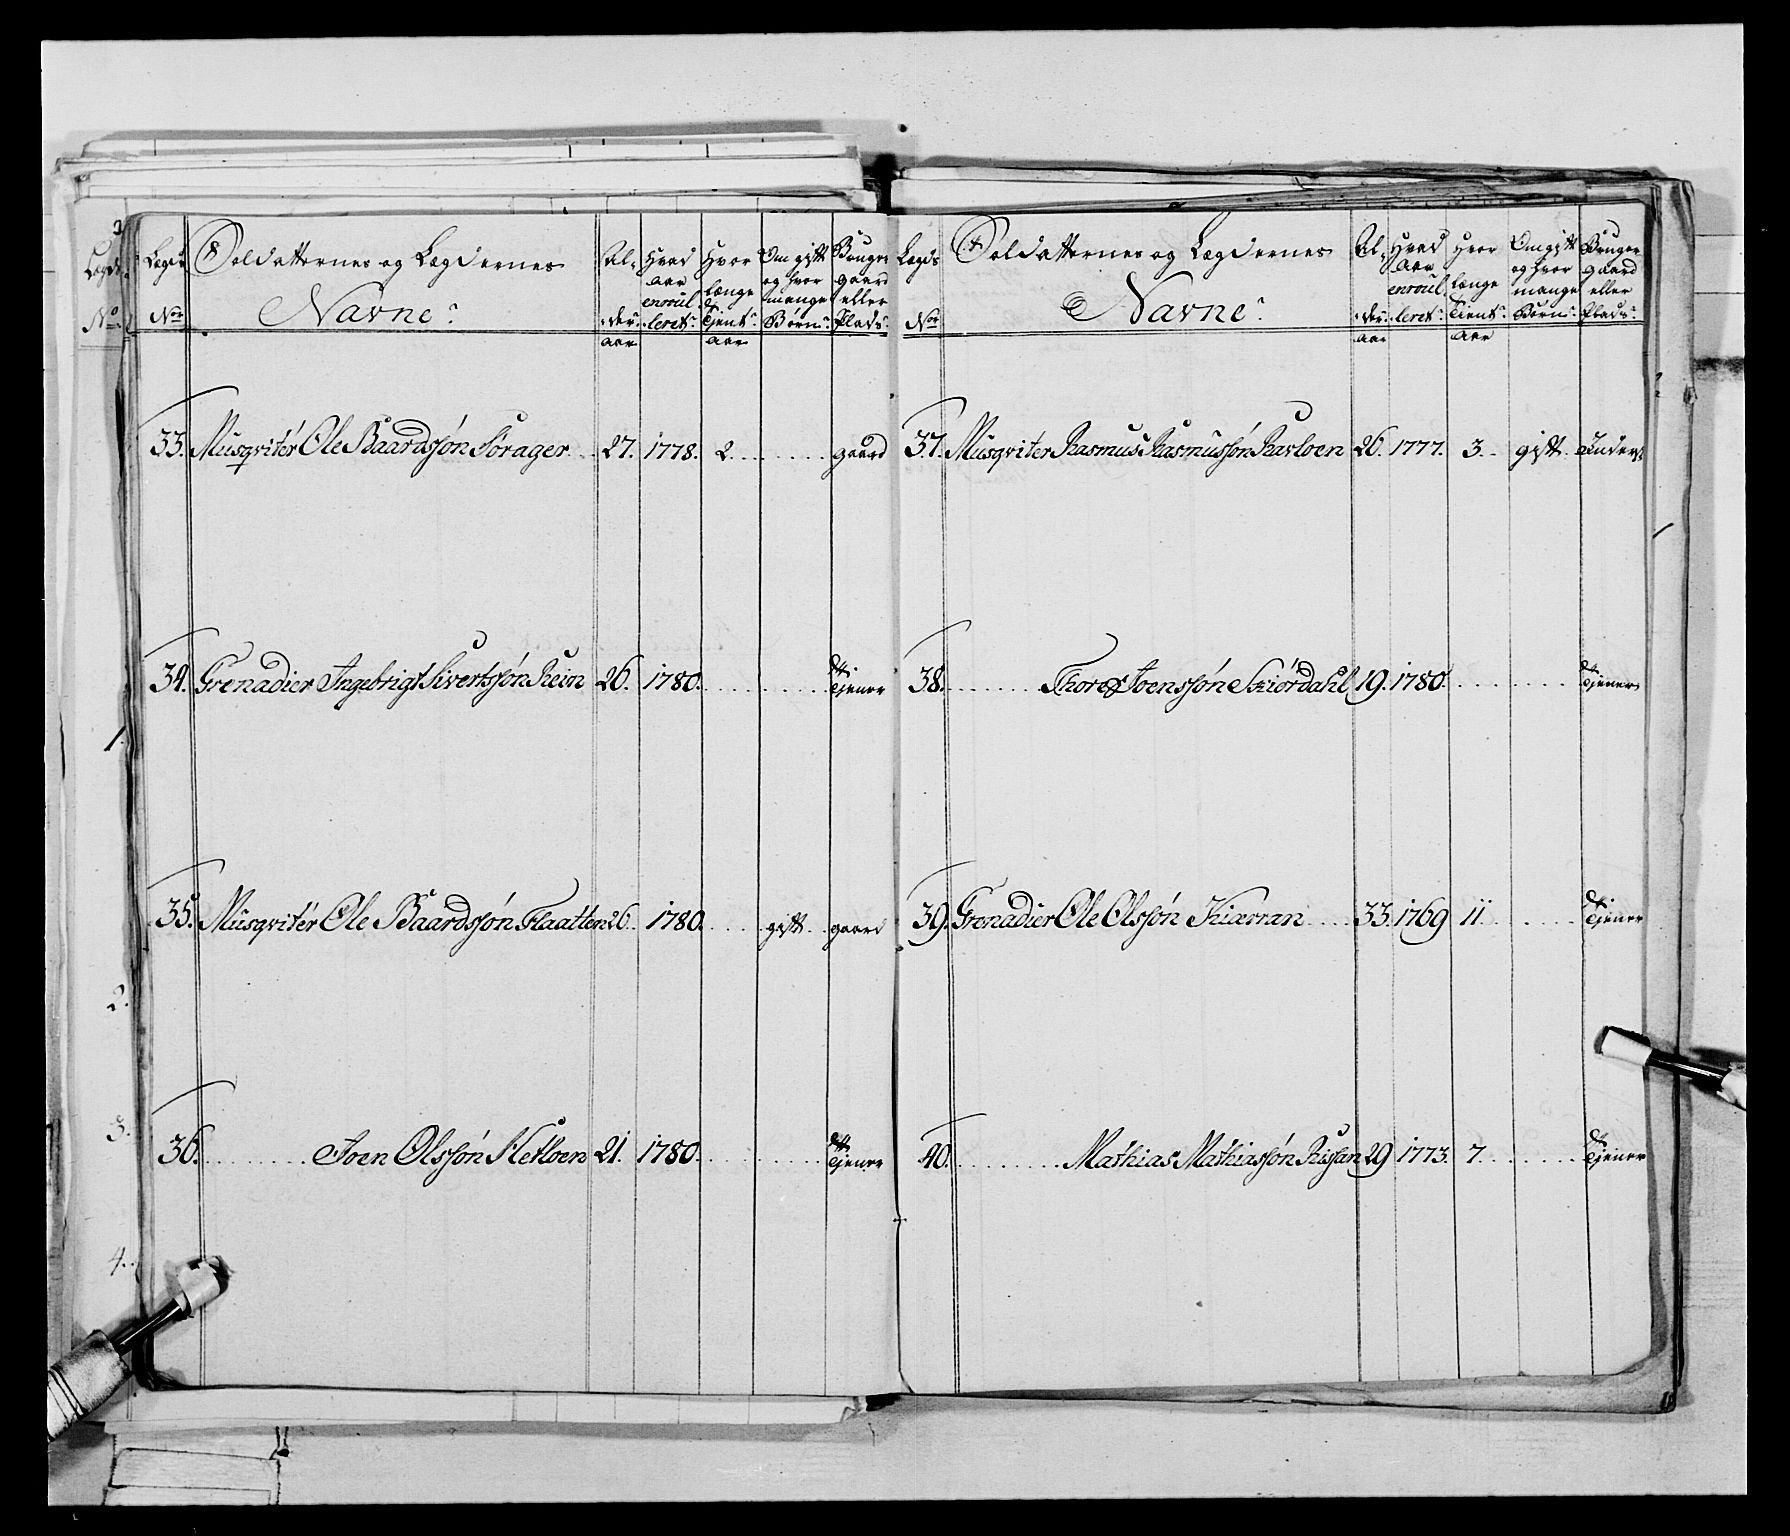 Legds No
Soldatternes og Legdernes Navne
Al- der aar
Hvad aar enroul- leret
Hvor længe Tient aar
Om gift og hvor mange Børn
Bruger gaard eller Plads
33. Musqvitér Ole Baardssøn Forager 27. 1778. 2. gaard
34. Grenadier Ingebrigt Sivertssøn Reim 26. 1780. dtt Tjener
35. Musqvitér Ole Baardssøn Flaatten 26. 1780. gift gaard
36. Joen Olssøn Hetloen 21. 1780. dtt Tjener
Legds No
Soldatternes og Legdernes Navne
Al- der aar
Hvad aar enroul- leret
Hvor længe Tient aar
Om gift og hvor mange Børn
Bruger gaard eller Plads
37. Musqviter Rasmus Rasmussøn Ravloen 26. 1777. 3. gift. Inders
38. Thore Joenssøn Skiørdahl 19. 1780. dtt Tjener
39. Grenadier Ole Olssøn Kiærran 33. 1769 11 dtt Tjener
40. Mathias Mathiassøn Risan 29 1773. 7. dtt Tjener
1.
2.
3.
4.